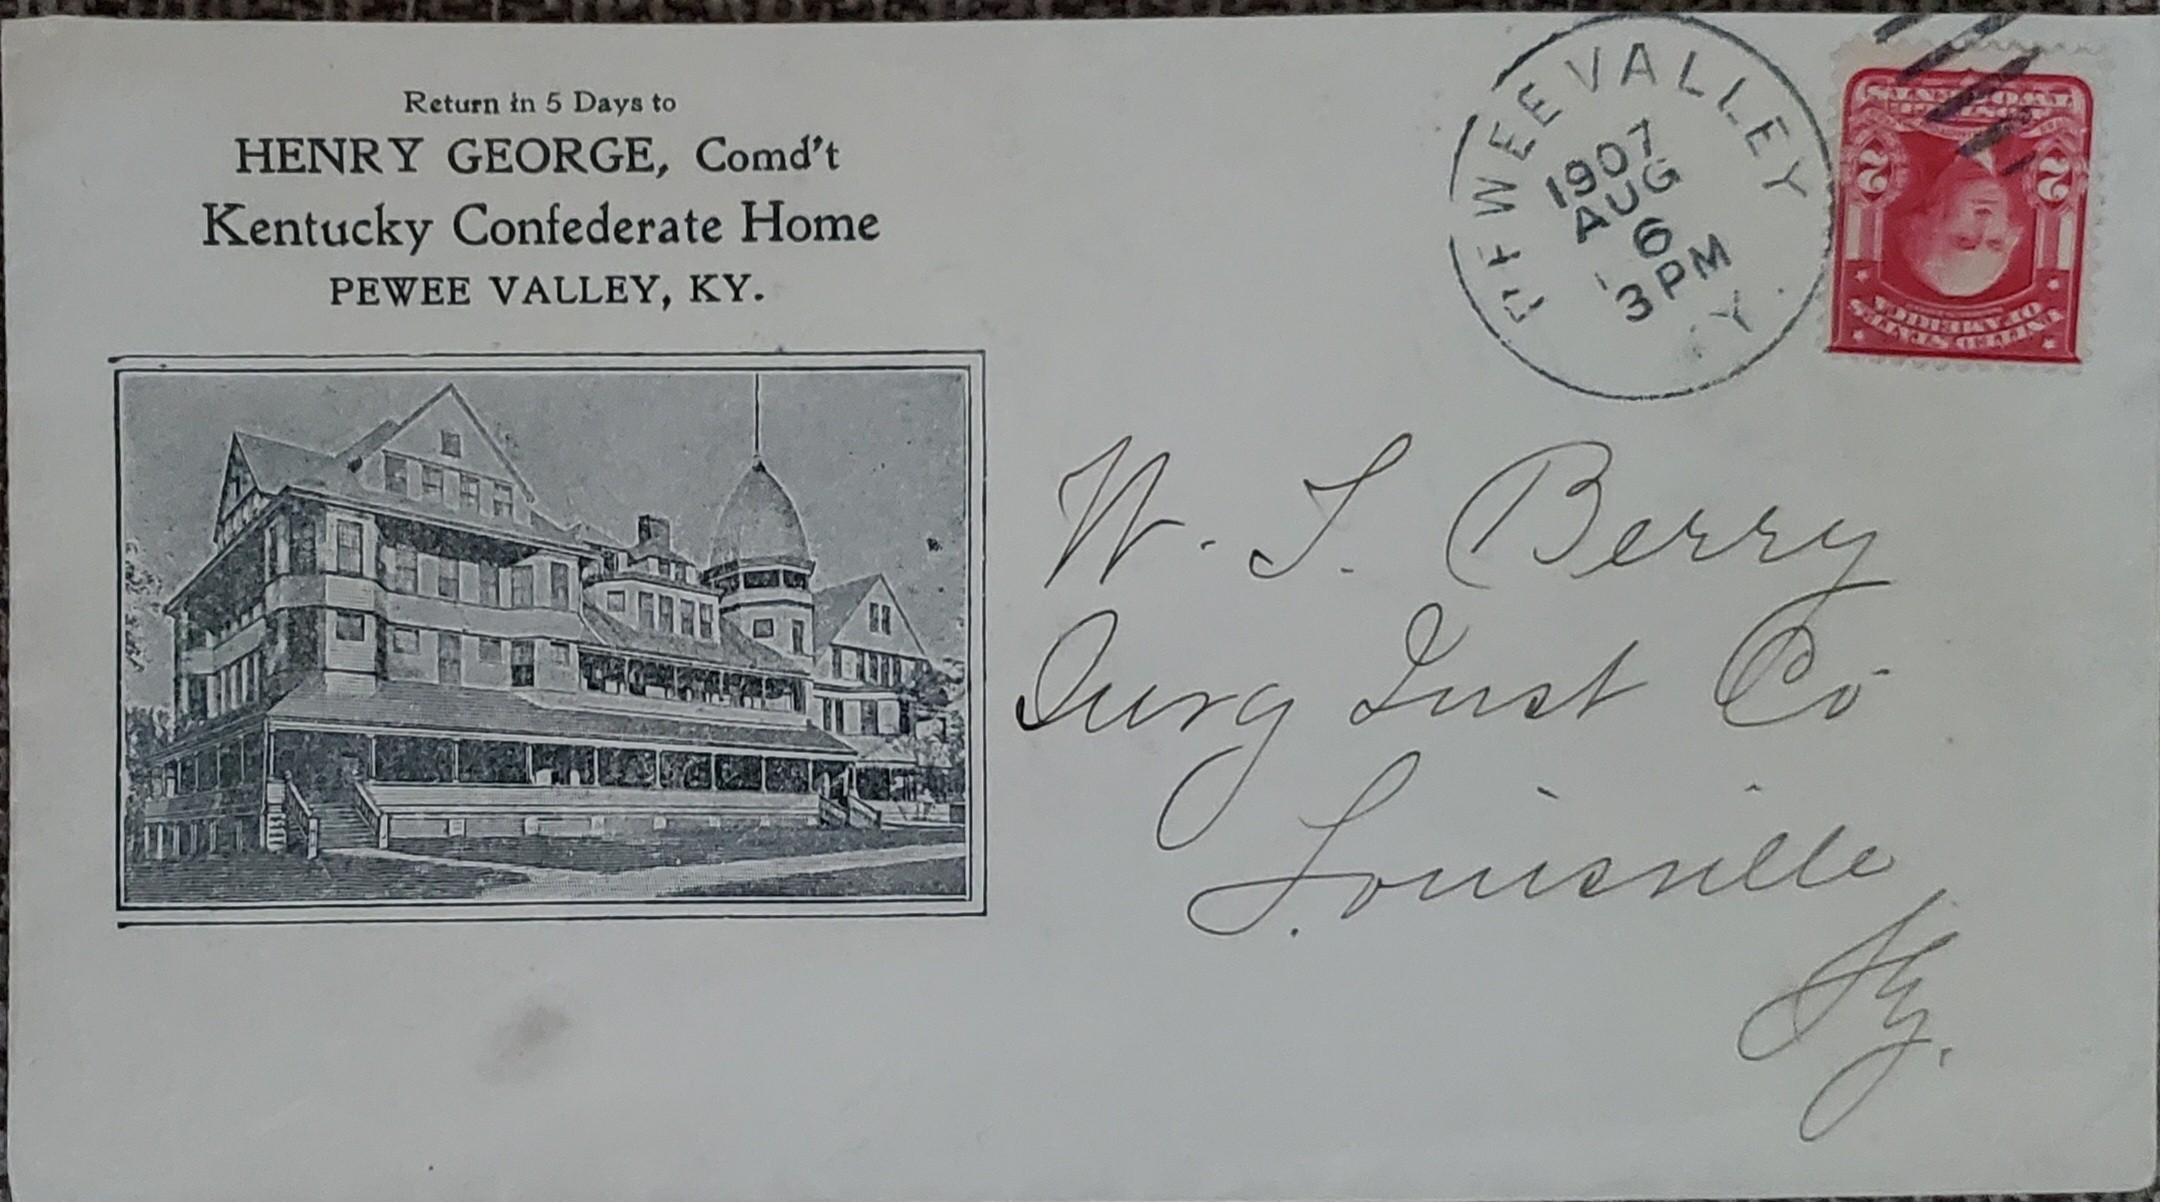 Return in 5 Days to
HENRY GEORGE, Comd't
Kentucky Confederate Home
PEWEE VALLEY, KY.
PEWEE VALLEY
1907
AUG
6
3 PM
KY.
TWO CENTS
2 2
UNITED STATES
OF AMERICA
W. T. Berry
Trust Co
Louisville
Ky.